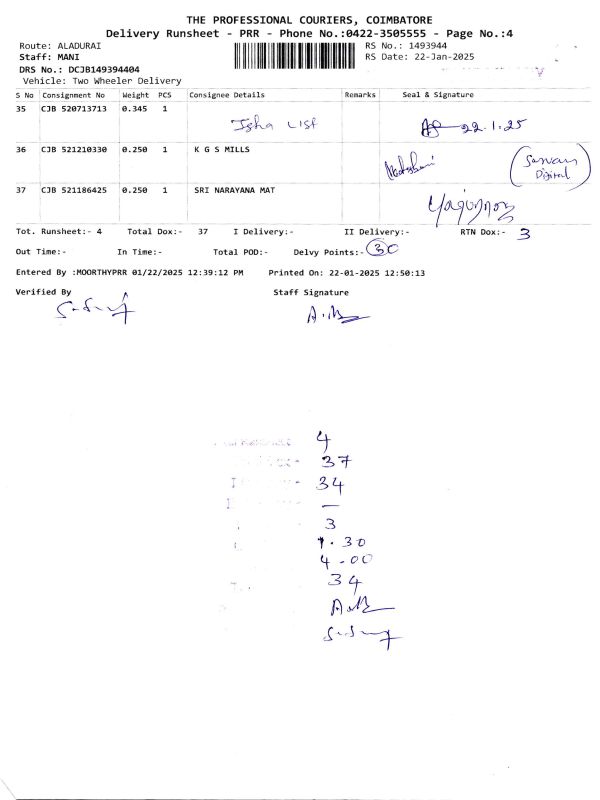 THE PROFESSIONAL COURIERS, COIMBATORE
Delivery Runsheet - PRR - Phone No.:0422-3505555 - Page No.:4
Route: ALADURAI RS No.: 1493944
Staff: MANI RS Date: 22-Jan-2025
DRS No.: DCJB149394404
Vehicle: Two Wheeler Delivery
S No Consignment No Weight PCS Consignee Details Remarks Seal & Signature
35 CJB 520713713 0.345 1
Isha List 22.1.25
36 CJB 521210330 0.250 1 K G S MILLS
Digital
37 CJB 521186425 0.250 1 SRI NARAYANA MAT
Tot. Runsheet:- 4 Total Dox:- 37 I Delivery:- II Delivery:- RTN Dox:- 3
Out Time:- In Time:- Total POD:- Delvy Points:- 30
Entered By :MOORTHYPRR 01/22/2025 12:39:12 PM Printed On: 22-01-2025 12:50:13
Verified By Staff Signature
4
37
34
—
3
1.30
4.00
34